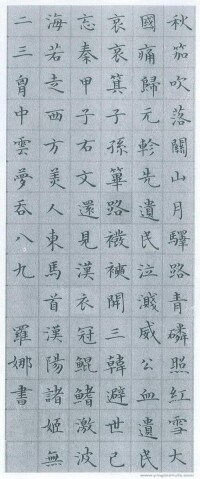 秋笳吹落關山月驛路青磷照紅雪大
國痛歸元軫先遺民泣濺威公血遺民
哀哀箕子孫篳路襏襫開三韓避世已
忘秦甲子右文還見漢衣冠鯤鰭激波
海若走西方美人東馬首漢陽諸姬無
二三胷中雲夢吞八九 羅娜書